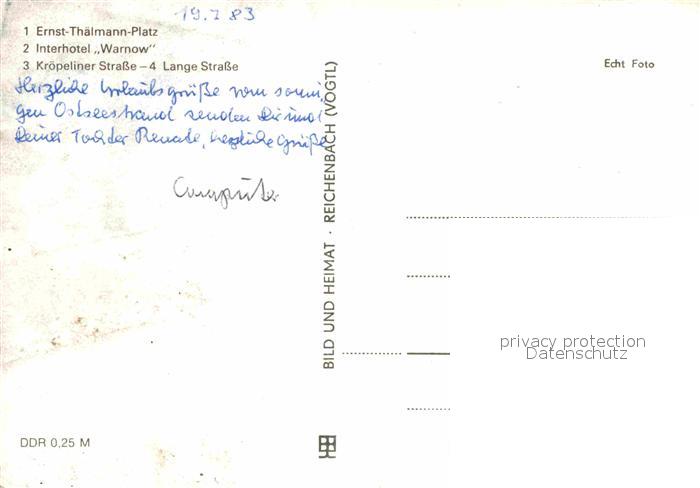 19.7.83
1 Ernst-Thälmann-Platz
2 Interhotel „Warnow"
3 Kröpeliner Straße – 4 Lange Straße
Echt Foto
Herzliche Urlaubsgrüße vom sonni
gen Ostseestrand senden Dir und
Deiner Tochter Renate, herzliche Grüße
BILD UND HEIMAT · REICHENBACH (VOGTL)
privacy protection
Datenschutz
DDR 0,25 M